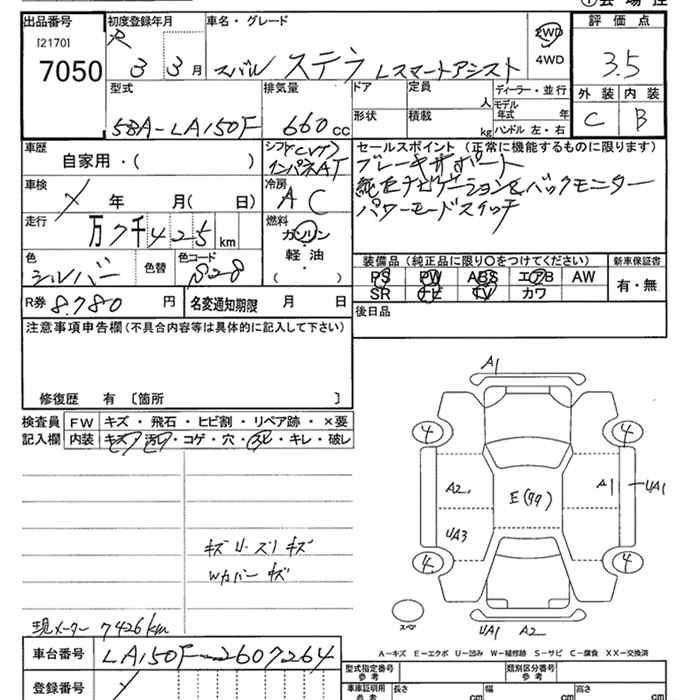 出品番号 初度登録年月 車名・グレード 評価点
[2170] R 2WD
7050 3 3月 スバル ステラ Lスマートアシスト 4WD 3.5
型式 排気量 ドア 定員 ディーラー・並行 外装 内装
人 モデル年式 年
5BA-LA150F 660cc 形状 積載 kg ハンドル 左・右 C B
車歴 シフト(CVT) セールスポイント(正常に機能するものに限ります)
自家用・( ) インパネAT ブレーキサポート
車検 冷房 純正ナビゲーション&バックモニター
年 月( 日) AC パワーモードスイッチ
走行 燃料
万7千425km ガソリン
色 色替 色コード 軽・油 装備品(純正品に限り○をつけてください) 新車保証書
シルバー S28 ( ) PS PW ABS エアB AW 有・無
SR ナビ TV カワ
R券 8.780円 名変通知期限 月 日 後日品
注意事項申告欄(不具合内容等は具体的に記入して下さい)
修復歴 有〔箇所 〕
検査員 FW キズ・飛石・ヒビ割・リペア跡・×要
記入欄 内装 キズ・汚レ・コゲ・穴・スレ・キレ・破レ
A1
4 4
A2 E(タタ) A1 UA1
UA3
キズ U・ズリキズ
Wカバー キズ
4 4
スペア
UA1 A2
現メーター 7426km
A-キズ E-エクボ U-凹み W-補修跡 S-サビ C-腐食 XX-交換済
車台番号 LA150F-2607264
型式指定番号 参考 類別区分番号 参考
登録番号
車庫証明用 参考 長さ cm 幅 cm 高さ cm